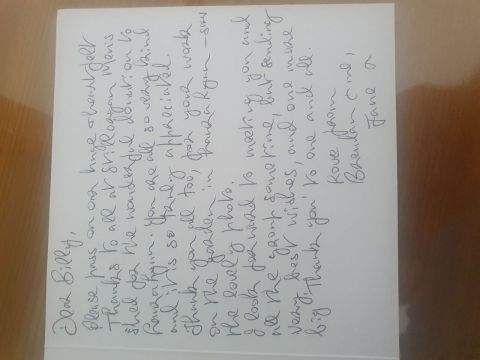 Dear Billy,
Please pass on our huge & heartfelt
Thanks to all at Stillorgan Mens
Shed for the wonderful donation to
You are all so very kind
and it is so greatly appreciated.
Thank you all too, for your work
on the garden in - saw
the lovely photo.
I look forward to meeting you and
all the group sometime, but sending
very best wishes, and one more
big 'Thank you' to one and all.
Love from
Brendan & me,
Jane x